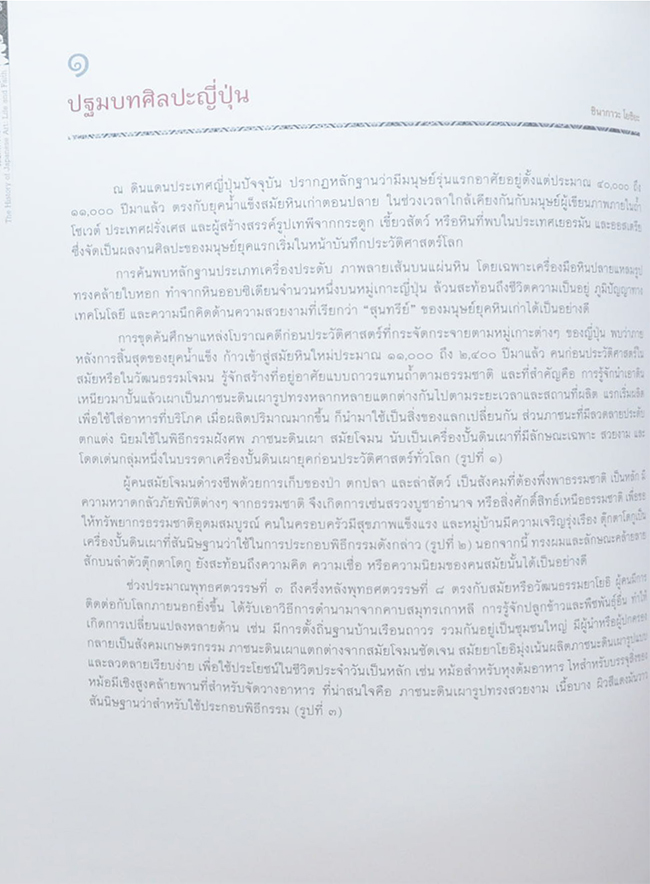 The History of Japanese Art: Life and Faith
๑
ปฐมบทศิลปะญี่ปุ่น
ชินากาวะ โยชิยะ
ณ ดินแดนประเทศญี่ปุ่นปัจจุบัน ปรากฏหลักฐานว่ามีมนุษย์รุ่นแรกอาศัยอยู่ตั้งแต่ประมาณ ๔๐,๐๐๐ ถึง
๑๑,๐๐๐ ปีมาแล้ว ตรงกับยุคน้ำแข็งสมัยหินเก่าตอนปลาย ในช่วงเวลาใกล้เคียงกันกับมนุษย์ผู้เขียนภาพภายในถ้ำ
โชเวต์ ประเทศฝรั่งเศส และผู้สร้างสรรค์รูปเทพีจากกระดูก เขี้ยวสัตว์ หรือหินที่พบในประเทศเยอรมัน และออสเตรีย
ซึ่งจัดเป็นผลงานศิลปะของมนุษย์ยุคแรกเริ่มในหน้าบันทึกประวัติศาสตร์โลก
การค้นพบหลักฐานประเภทเครื่องประดับ ภาพลายเส้นบนแผ่นหิน โดยเฉพาะเครื่องมือหินปลายแหลมรูป
ทรงคล้ายใบหอก ทำจากหินออบซิเดียนจำนวนหนึ่งบนหมู่เกาะญี่ปุ่น ล้วนสะท้อนถึงชีวิตความเป็นอยู่ ภูมิปัญญาทาง
เทคโนโลยี และความนึกคิดด้านความสวยงามที่เรียกว่า “สุนทรีย์” ของมนุษย์ยุคหินเก่าได้เป็นอย่างดี
การขุดค้นศึกษาแหล่งโบราณคดีก่อนประวัติศาสตร์ที่กระจัดกระจายตามหมู่เกาะต่างๆ ของญี่ปุ่น พบว่าภาย
หลังการสิ้นสุดของยุคน้ำแข็ง ก้าวเข้าสู่สมัยหินใหม่ประมาณ ๑๑,๐๐๐ ถึง ๒,๔๐๐ ปีมาแล้ว คนก่อนประวัติศาสตร์ใน
สมัยหรือในวัฒนธรรมโจมน รู้จักสร้างที่อยู่อาศัยแบบถาวรแทนถ้ำตามธรรมชาติ และที่สำคัญคือ การรู้จักนำเอาดิน
เหนียวมาปั้นแล้วเผาเป็นภาชนะดินเผารูปทรงหลากหลายแตกต่างกันไปตามระยะเวลาและสถานที่ผลิต แรกเริ่มผลิต
เพื่อใช้ใส่อาหารที่บริโภค เมื่อผลิตปริมาณมากขึ้น ก็นำมาใช้เป็นสิ่งของแลกเปลี่ยนกัน ส่วนภาชนะที่มีลวดลายประดับ
ตกแต่ง นิยมใช้ในพิธีกรรมฝังศพ ภาชนะดินเผา สมัยโจมน นับเป็นเครื่องปั้นดินเผาที่มีลักษณะเฉพาะ สวยงาม และ
โดดเด่นกลุ่มหนึ่งในบรรดาเครื่องปั้นดินเผายุคก่อนประวัติศาสตร์ทั่วโลก (รูปที่ ๑)
ผู้คนสมัยโจมนดำรงชีพด้วยการเก็บของป่า ตกปลา และล่าสัตว์ เป็นสังคมที่ต้องพึ่งพาธรรมชาติ เป็นหลัก มี
ความหวาดกลัวภัยพิบัติต่างๆ จากธรรมชาติ จึงเกิดการเซ่นสรวงบูชาอำนาจ หรือสิ่งศักดิ์สิทธิ์เหนือธรรมชาติ เพื่อขอ
ให้ทรัพยากรธรรมชาติอุดมสมบูรณ์ คนในครอบครัวมีสุขภาพแข็งแรง และหมู่บ้านมีความเจริญรุ่งเรือง ตุ๊กตาโดกูเป็น
เครื่องปั้นดินเผาที่สันนิษฐานว่าใช้ในการประกอบพิธีกรรมดังกล่าว (รูปที่ ๒) นอกจากนี้ ทรงผมและลักษณะคล้ายลาย
สักบนลำตัวตุ๊กตาโดกู ยังสะท้อนถึงความคิด ความเชื่อ หรือความนิยมของคนสมัยนั้นได้เป็นอย่างดี
ช่วงประมาณพุทธศตวรรษที่ ๓ ถึงครึ่งหลังพุทธศตวรรษที่ ๘ ตรงกับสมัยหรือวัฒนธรรมยาโยอิ ผู้คนมีการ
ติดต่อกับโลกภายนอกยิ่งขึ้น ได้รับเอาวิธีการดำนามาจากคาบสมุทรเกาหลี การรู้จักปลูกข้าวและพืชพันธุ์อื่น ทำให้
เกิดการเปลี่ยนแปลงหลายด้าน เช่น มีการตั้งถิ่นฐานบ้านเรือนถาวร รวมกันอยู่เป็นชุมชนใหญ่ มีผู้นำหรือผู้ปกครอง
กลายเป็นสังคมเกษตรกรรม ภาชนะดินเผาแตกต่างจากสมัยโจมนชัดเจน สมัยยาโยอิมุ่งเน้นผลิตภาชนะดินเผารูปแบบ
และลวดลายเรียบง่าย เพื่อใช้ประโยชน์ในชีวิตประจำวันเป็นหลัก เช่น หม้อสำหรับหุงต้มอาหาร ไหสำหรับบรรจุสิ่งของ
หม้อมีเชิงสูงคล้ายพานที่สำหรับจัดวางอาหาร ที่น่าสนใจคือ ภาชนะดินเผารูปทรงสวยงาม เนื้อบาง ผิวสีแดงมันวาว
สันนิษฐานว่าสำหรับใช้ประกอบพิธีกรรม (รูปที่ ๓)